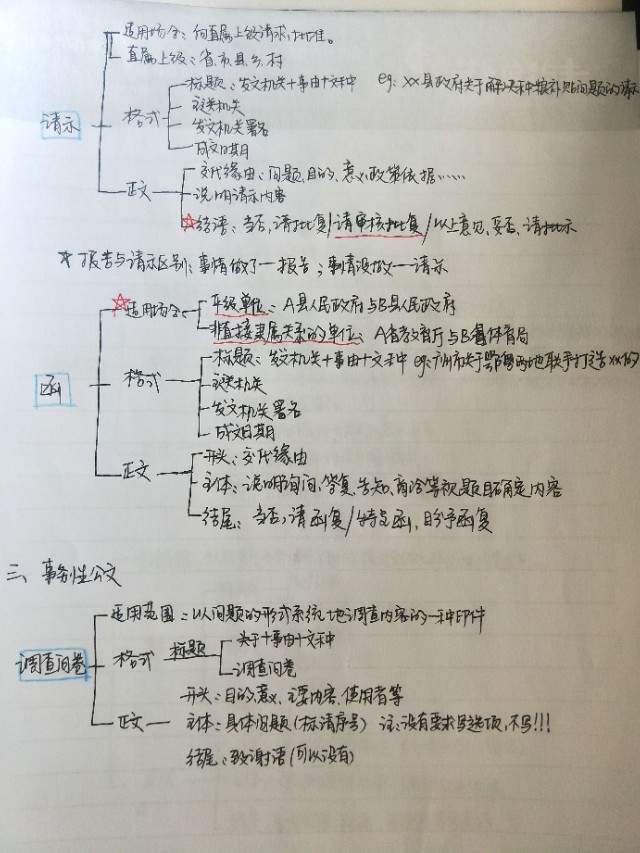 适用场合：向直属上级请求批准。
直属上级：省市县乡村
请示
格式
标题：发文机关+事由+文种 eg：xx县政府关于解决种粮补贴问题的请示
主送机关
发文机关署名
成文日期
正文
交代缘由：问题、目的、意义、政策依据……
说明请示内容
☆结语：当否，请批复/请审核批复/以上意见，妥否，请批示
*报告与请示区别：事情做了—报告；事情没做—请示
函
☆适用场合
平级单位：A县人民政府与B县人民政府
非直接隶属关系的单位：A省教育厅与B县体育局
格式
标题：发文机关+事由+文种 eg：广州市关于 两地联手打造xx的
主送机关
发文机关署名
成文日期
正文
开头：交代缘由
主体：说明询问、答复、告知、商洽等视题目确定内容
结尾：当否，请函复/特此函，盼予函复
三、事务性公文
调查问卷
适用范围：以问题的形式系统地调查内容的一种印件
格式 标题
关于+事由+文种
调查问卷
正文
开头：目的、意义、主要内容、使用者等
主体：具体问题（标清序号） 注：没有要求写选项，不写!!!
结尾：致谢语（可以没有）